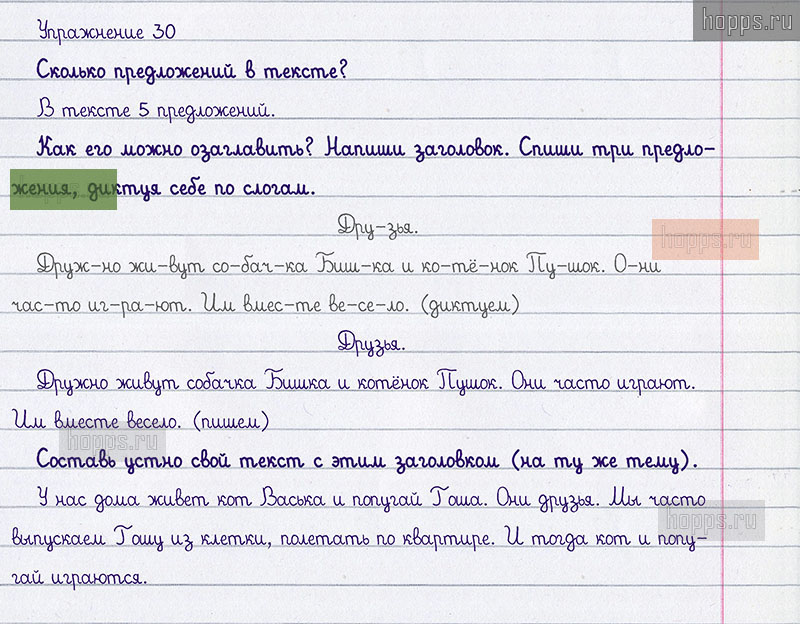 hopps.ru
Упражнение 30
Сколько предложений в тексте?
В тексте 5 предложений.
Как его можно озаглавить? Напиши заголовок. Спиши три предло-
жения, диктуя себе по слогам.
Дру-зья.
hopps.ru
Друж-но жи-вут со-бач-ка Биш-ка и ко-тё-нок Пу-шок. О-ни
час-то иг-ра-ют. Им вмес-те ве-се-ло. (диктуем)
Друзья.
Дружно живут собачка Бишка и котёнок Пушок. Они часто играют.
Им вместе весело. (пишем)
hopps.ru
Составь устно свой текст с этим заголовком (на ту же тему).
У нас дома живет кот Васька и попугай Гаша. Они друзья. Мы часто
hopps.ru
выпускаем Гашу из клетки, полетать по квартире. И тогда кот и попу-
гай играются.